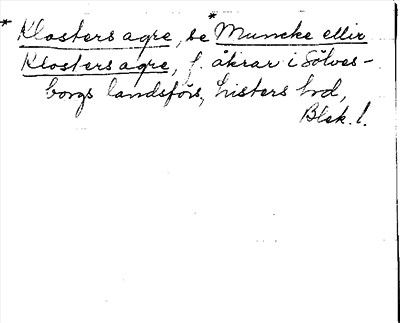 * Klosters agre, se * Muncke ellir
Klosters agre, f. åkrar i Sölves-
borgs landsförs, Listers hd,
Blek. l.